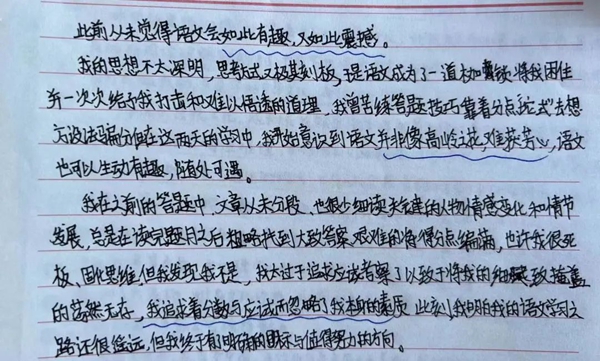 此前从未觉得语文会如此有趣，又如此震撼。
我的思想不太深明，思考方式又极其刻板，于是语文成为了一道枷锁将我困住
并一次次给予我打击和难以悟透的道理，我曾苦练答题技巧靠着分点"论式"去想
方设法骗分值在这两天的学习中，我开始意识到语文并非像高岭之花，难获芳心，语文
也可以生动有趣，随处可遇。
我在之前的答题中，文章从未分段，也很少细读关键的人物情感变化和情节
发展，总是在读完题目之后粗略找到大致答案艰难的将得分点编篇，也许我很死
板、固化思维，但我发现我不是，我太过于追求应试考察了以致于将我的细腻
的荡然无存，我追求着分数与应试而忽略了我本身的素质 此刻，我明白我的语文学习之
路还很遥远，但我终于有了明确的目标与值得努力的方向。